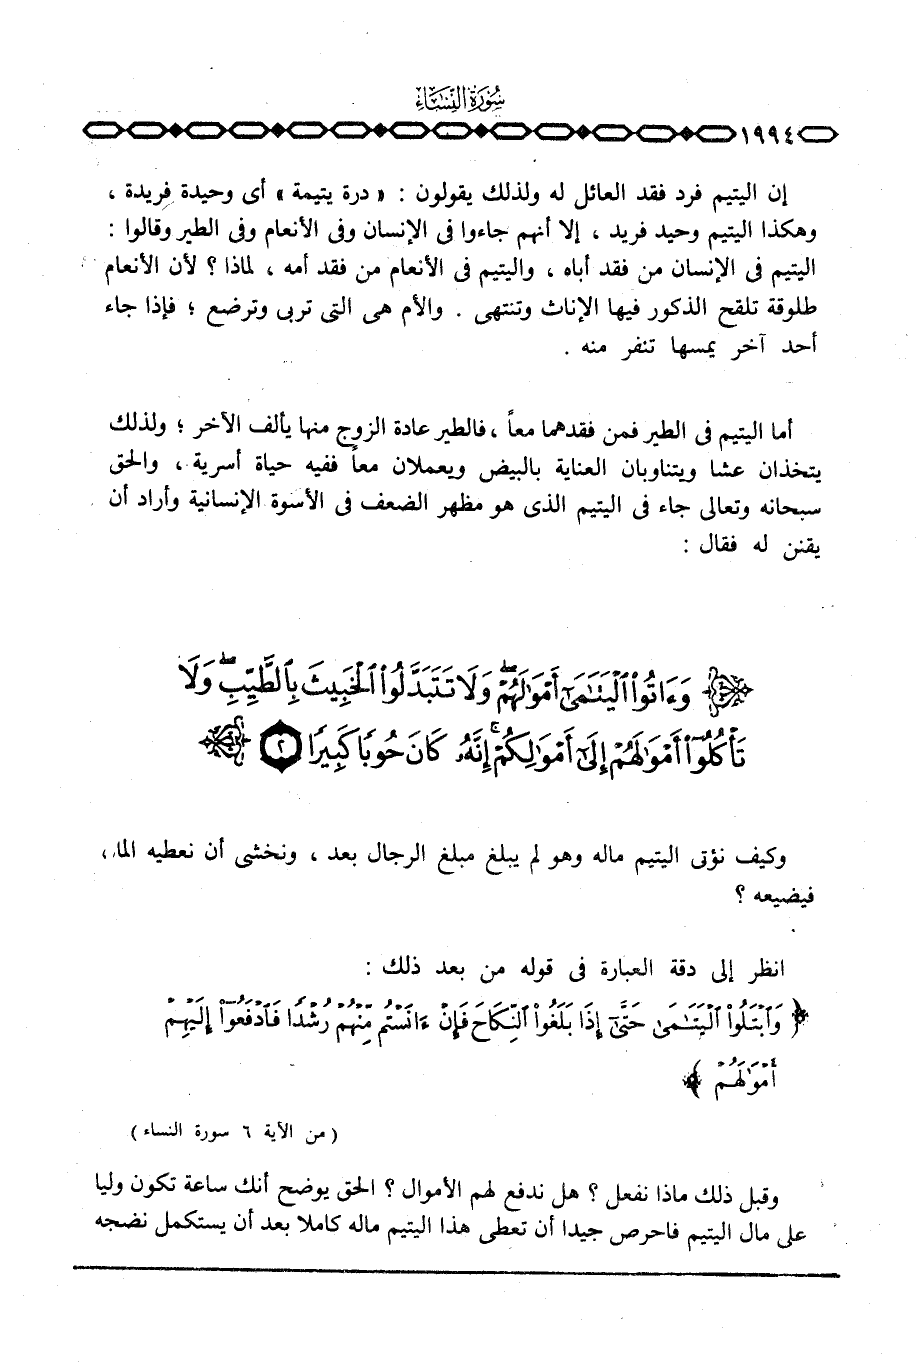 سُورَةُ النِّسَاءِ
١٩٩٤
إن اليتيم فرد فقد العائل له ولذلك يقولون : « درة يتيمة » أى وحيدة فريدة ،
وهكذا اليتيم وحيد فريد ، إلا أنهم جاءوا فى الإنسان وفى الأنعام وفى الطير وقالوا :
اليتيم فى الإنسان من فقد أباه ، واليتيم فى الأنعام من فقد أمه ، لماذا ؟ لأن الأنعام
طلوقة تلقح الذكور فيها الإناث وتنتهى . والأم هى التى تربى وترضع ؛ فإذا جاء
أحد آخر يمسها تنفر منه .
أما اليتيم فى الطير فمن فقدهما معاً ، فالطير عادة الزوج منها يألف الآخر ؛ ولذلك
يتخذان عشا ويتناوبان العناية بالبيض ويعملان معاً ففيه حياة أسرية ، والحق
سبحانه وتعالى جاء فى اليتيم الذى هو مظهر الضعف فى الأسوة الإنسانية وأراد أن
يقنن له فقال :
وَءَاتُوا۟ ٱلْيَتَـٰمَىٰٓ أَمْوَٰلَهُمْ ۖ وَلَا تَتَبَدَّلُوا۟ ٱلْخَبِيثَ بِٱلطَّيِّبِ ۖ وَلَا
تَأْكُلُوٓا۟ أَمْوَٰلَهُمْ إِلَىٰٓ أَمْوَٰلِكُمْ ۚ إِنَّهُۥ كَانَ حُوبًا كَبِيرًا ٢
وكيف نؤتى اليتيم ماله وهو لم يبلغ مبلغ الرجال بعد ، ونخشى أن نعطيه المال ،
فيضيعه ؟
انظر إلى دقة العبارة فى قوله من بعد ذلك :
﴿ وَٱبْتَلُوا۟ ٱلْيَتَـٰمَىٰ حَتَّىٰٓ إِذَا بَلَغُوا۟ ٱلنِّكَاحَ فَإِنْ ءَانَسْتُم مِّنْهُمْ رُشْدًا فَٱدْفَعُوٓا۟ إِلَيْهِمْ
أَمْوَٰلَهُمْ ﴾
( من الآية ٦ سورة النساء )
وقبل ذلك ماذا نفعل ؟ هل ندفع لهم الأموال ؟ الحق يوضح أنك ساعة تكون وليا
على مال اليتيم فاحرص جيدا أن تعطى هذا اليتيم ماله كاملا بعد أن يستكمل نضجه